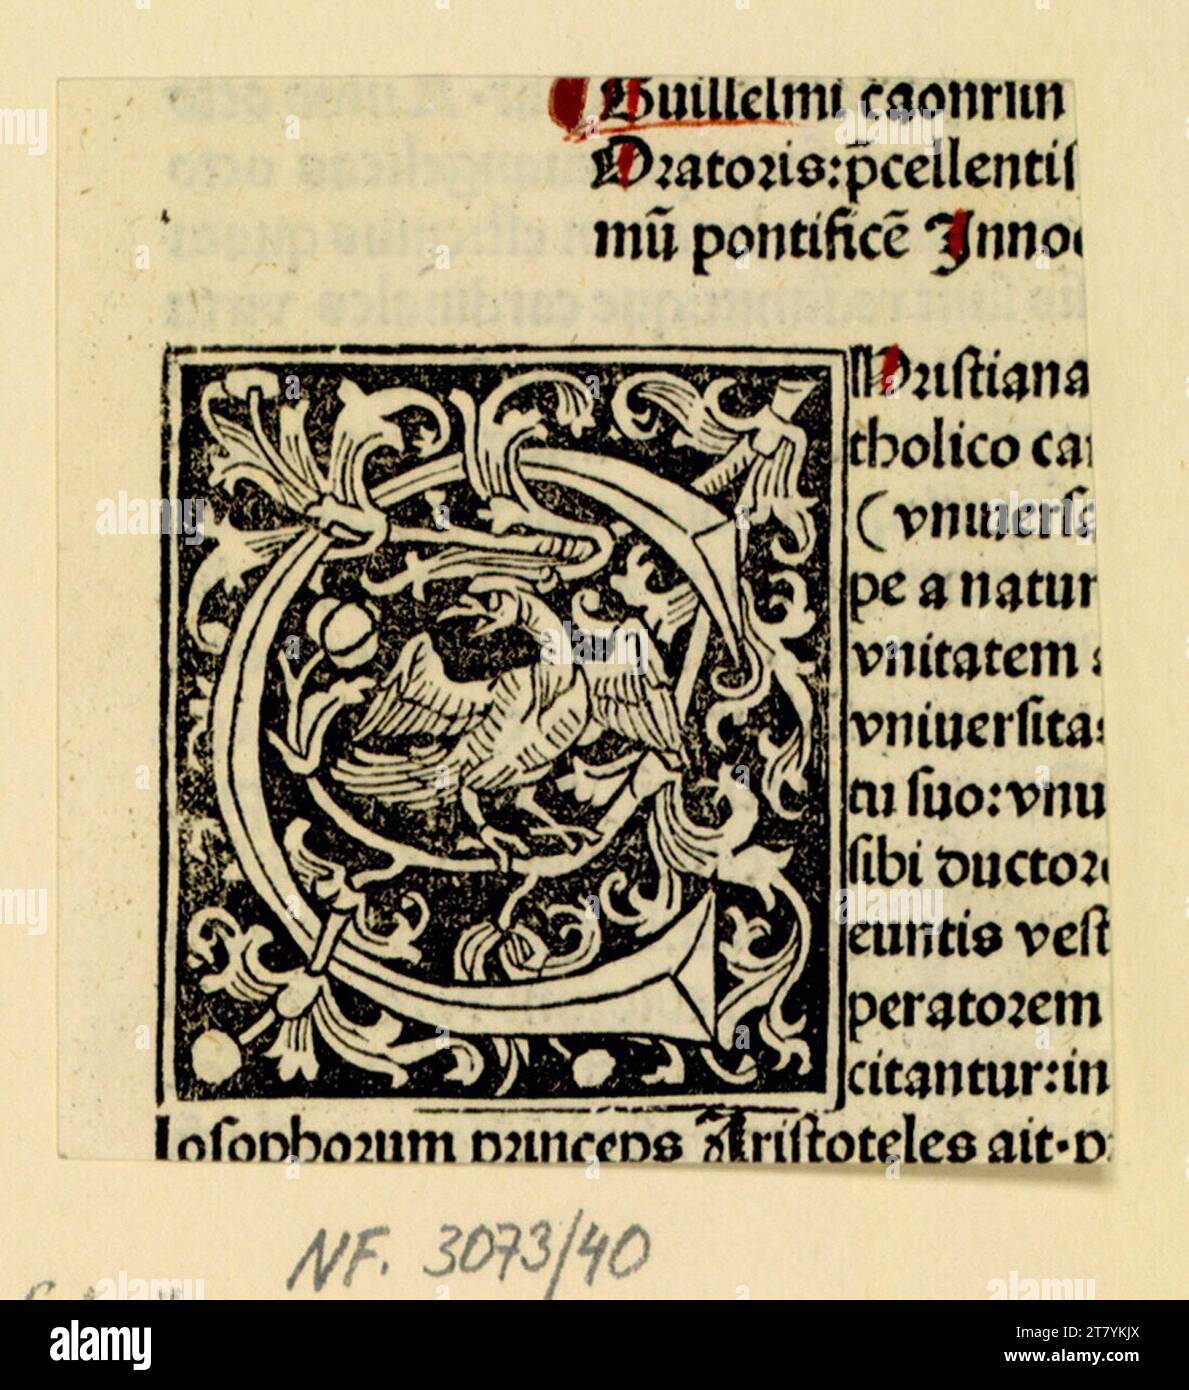 Guillelmi caonrun
Oratoris:p̄cellentiſ
mū pontificē Innoc
C
Hriſtiana
tholico ca
(vniuerſa
pe a natur
vnitatem
vniuerſitas
tu ſuo:vnu
ſibi ductore
euntis veſt
peratorem
citantur:in
loſophorum princeps Ariſtoteles ait·p
NF. 3073/40
alamy
Image ID: 2T7YKJX
www.alamy.com